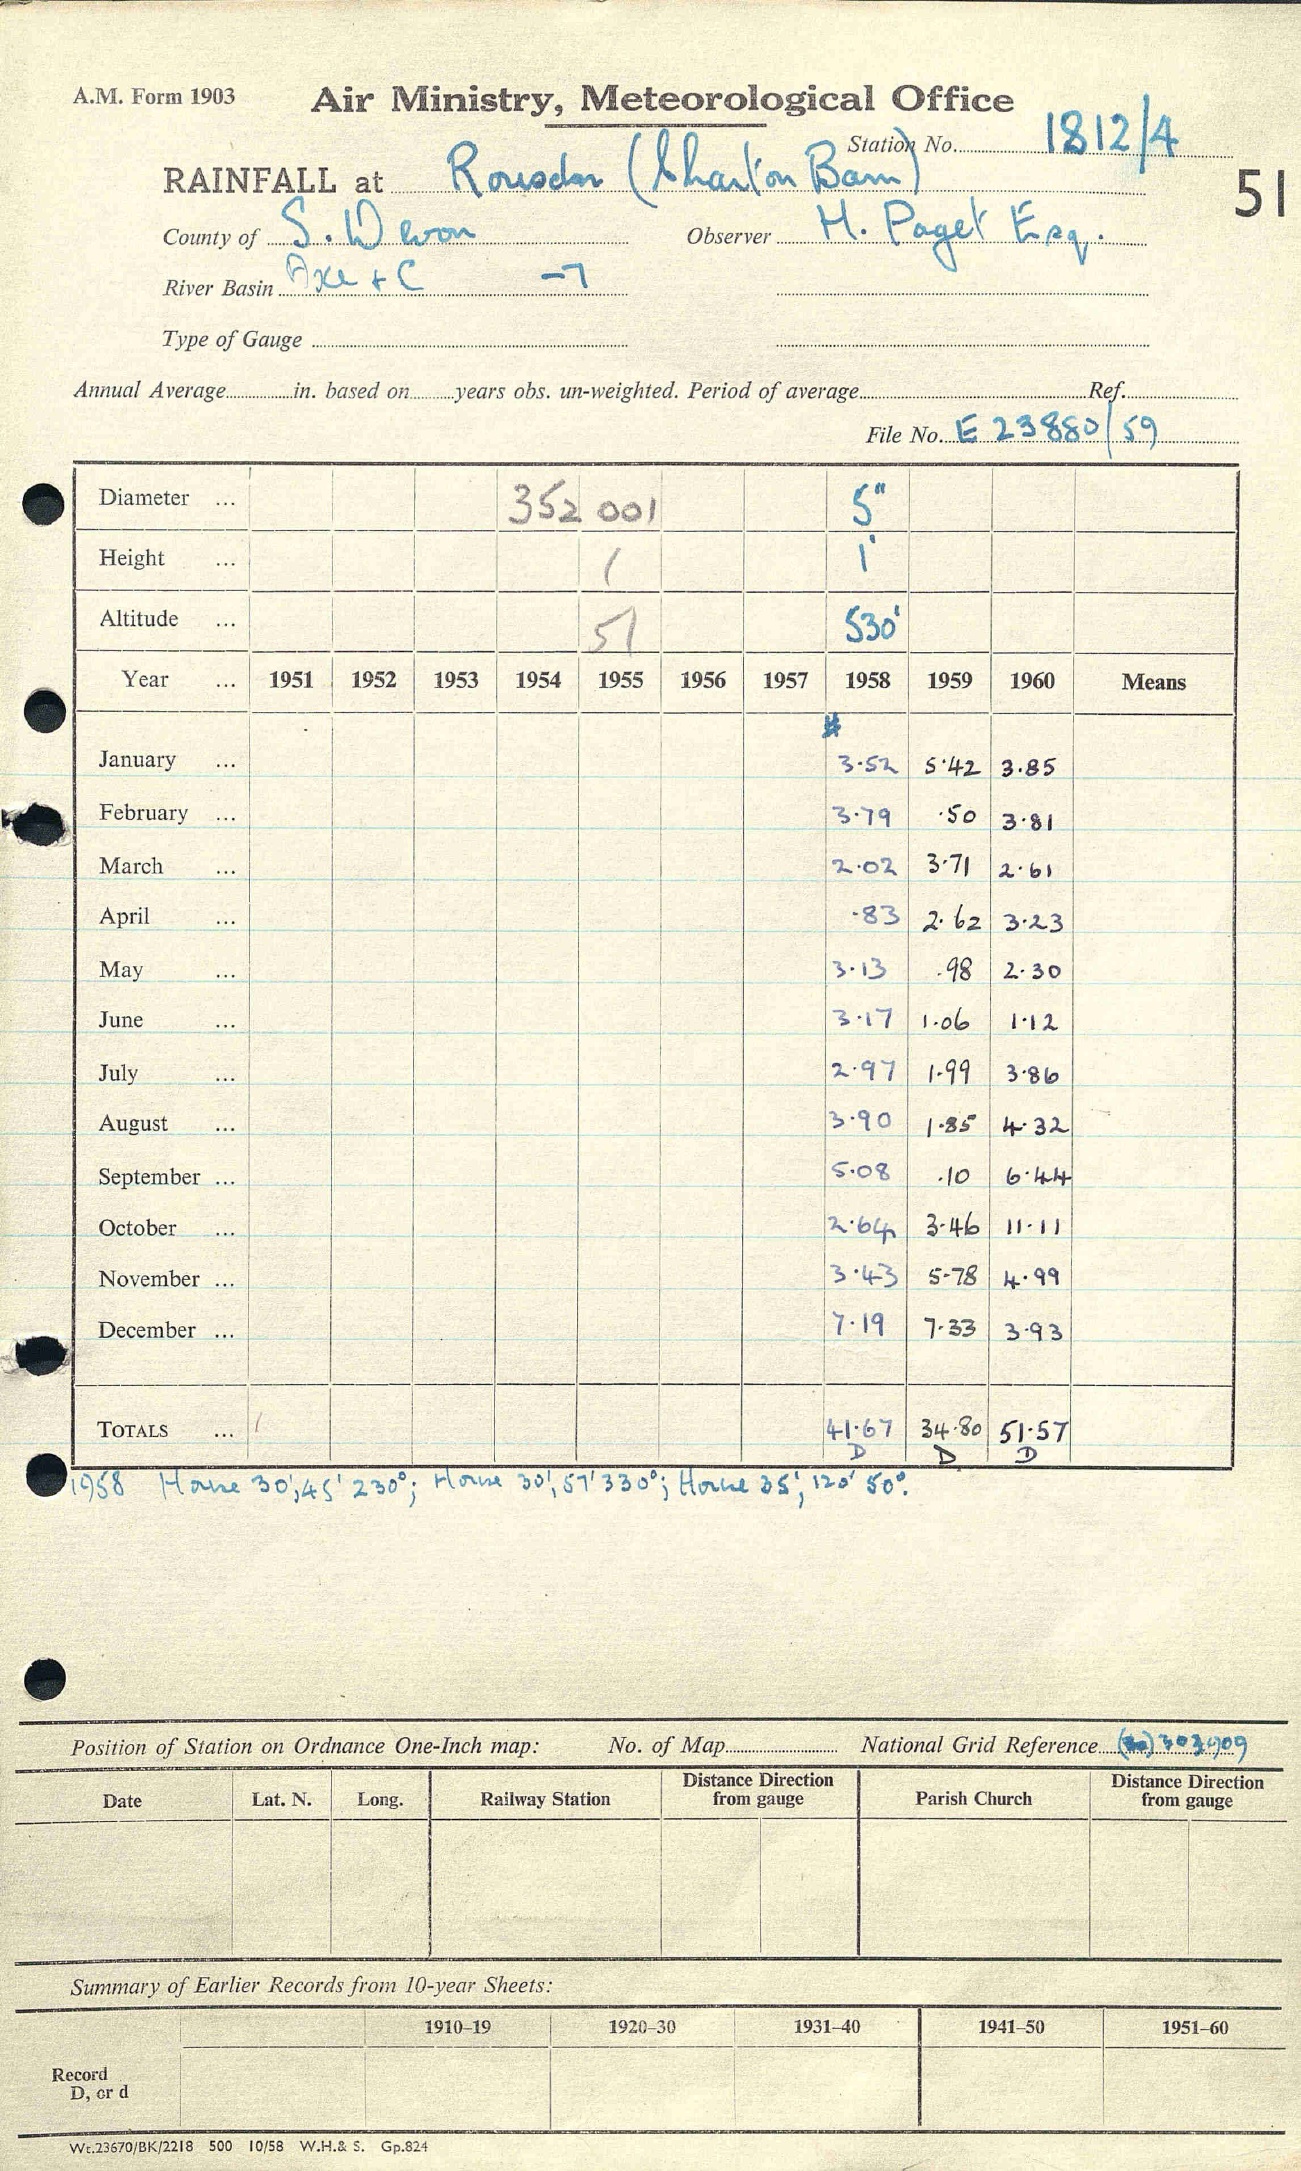 A.M. Form 1903 Air Ministry, Meteorological Office
Station No. 1812/4
RAINFALL at Rousdon (Charton Barn) 51
County of S. Devon Observer H. Paget Esq.
River Basin Axe + C -7
Type of Gauge
Annual Average in. based on years obs. un-weighted. Period of average Ref.
File No. E 23880/59
Diameter ... 352 001 5"
Height ... 1 1'
Altitude ... 51 530'
Year ... 1951 1952 1953 1954 1955 1956 1957 1958 1959 1960 Means
#
January ... 3.52 5.42 3.85
February ... 3.79 .50 3.81
March ... 2.02 3.71 2.61
April ... .83 2.62 3.23
May ... 3.13 .98 2.30
June ... 3.17 1.06 1.12
July ... 2.97 1.99 3.86
August ... 3.90 1.85 4.32
September ... 5.08 .10 6.44
October ... 2.64 3.46 11.11
November ... 3.43 5.78 4.99
December ... 7.19 7.33 3.93
TOTALS ... 41.67 34.80 51.57
D D D
1958 House 30', 45' 230°; House 30', 57' 330°; House 35', 120' 50°.
Position of Station on Ordnance One-Inch map: No. of Map National Grid Reference 303909
Date Lat. N. Long. Railway Station Distance Direction from gauge Parish Church Distance Direction from gauge
Summary of Earlier Records from 10-year Sheets:
1910–19 1920–30 1931–40 1941–50 1951–60
Record
D, or d
Wt.23670/BK/2218 500 10/58 W.H.& S. Gp.824